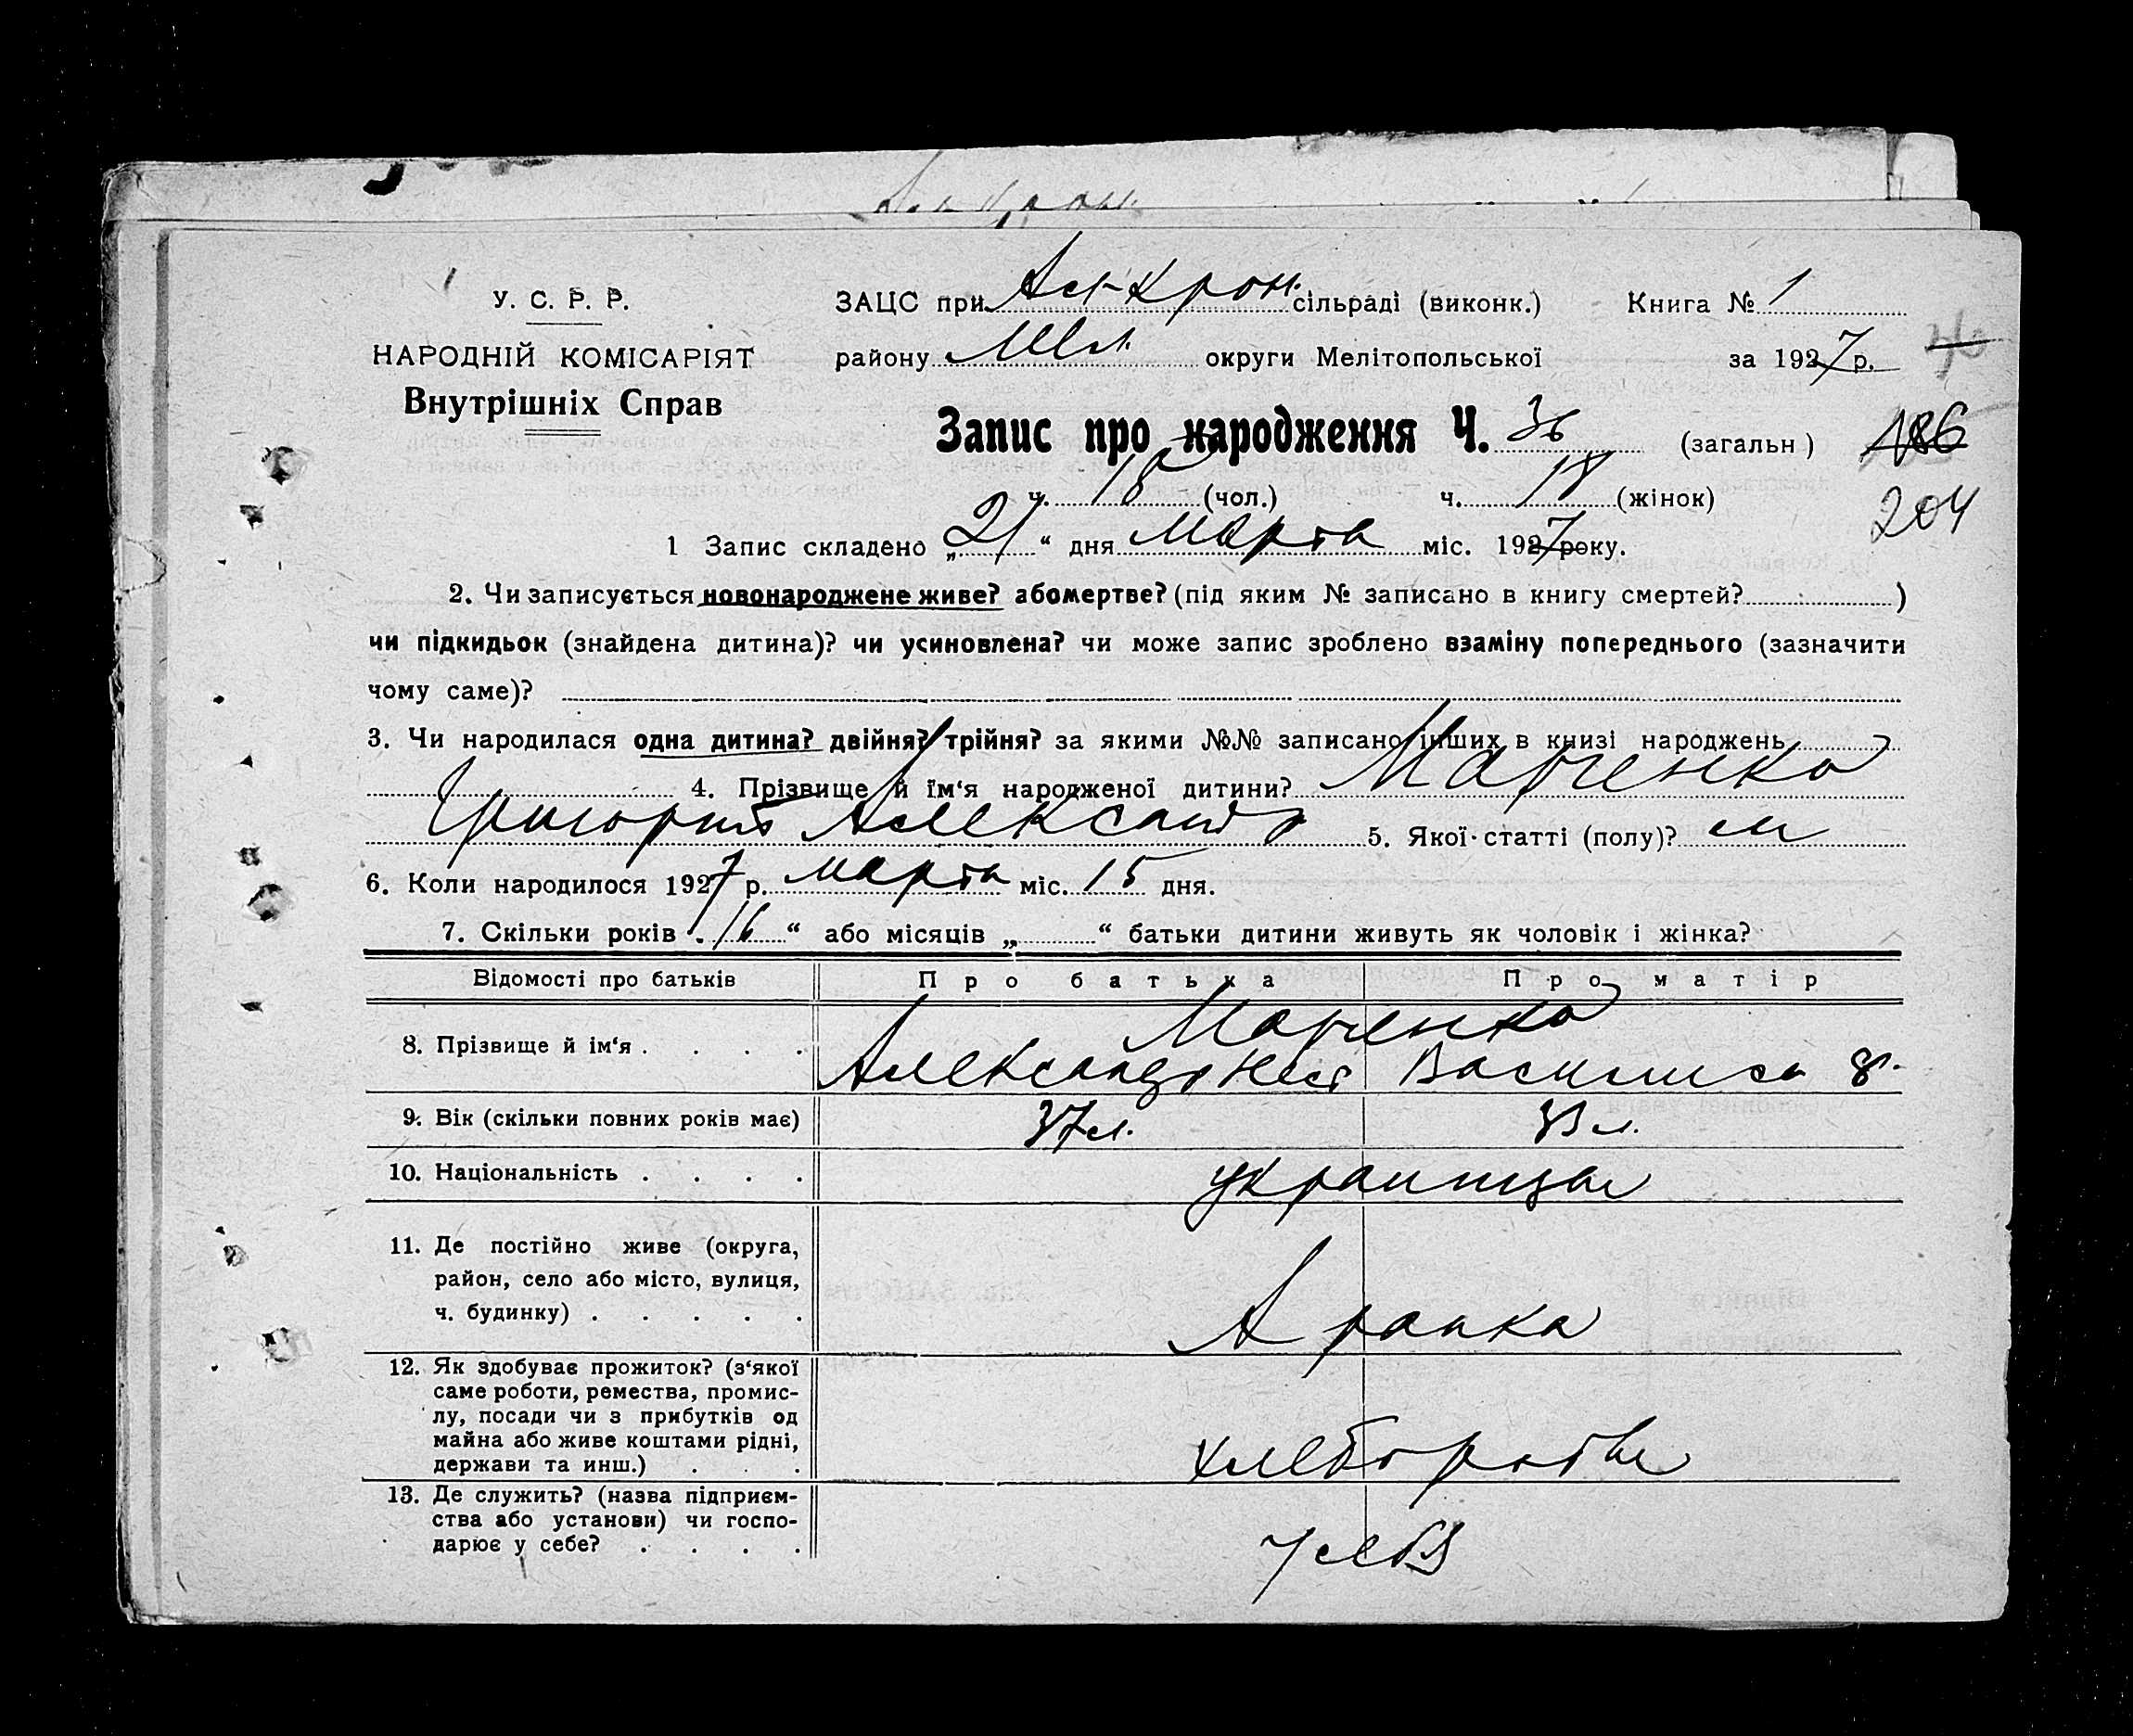 У. С. Р. Р.
НАРОДНІЙ КОМІСАРІЯТ
Внутрішніх Справ
ЗАЦС при сільраді (виконк.) Книга № 1
району Мел. округи Мелітопольської за 1927 р.
Запис про народження Ч. 36 (загальн)
186
204
ч. 18 (чол.) ч. 18 (жінок)
1 Запис складено „21“ дня марта міс. 1927 року.
2. Чи записується новонароджене живе? або мертве? (під яким № записано в книгу смертей? )
чи підкидьок (знайдена дитина)? чи усиновлена? чи може запис зроблено взаміну попереднього (зазначити
чому саме)?
3. Чи народилася одна дитина? двійня? трійня? за якими №№ записано інших в книзі народжень
4. Прізвище й їм'я народженої дитини? Марченко
Григорий Александр 5. Якої статті (полу)? м
6. Коли народилося 1927 р. марта міс. 15 дня.
7. Скільки років 16“ або місяців „ “ батьки дитини живуть як чоловік і жінка?
Відомості про батьків Про батька Про матір
8. Прізвище й ім'я . . . . Марченко
Александр Василиса
9. Вік (скільки повних років має) 37 л. 33 л.
10. Національність . . . . украинцы
11. Де постійно живе (округа,
район, село або місто, вулиця,
ч. будинку) . . . . .
12. Як здобуває прожиток? (з'якої
саме роботи, ремества, промис-
лу, посади чи з прибутків од
майна або живе коштами рідні,
держави та инш.) . . . хлеборобы
13. Де служить? (назва підприєм-
ства або установи) чи госпо-
дарює у себе? . . . . у себя